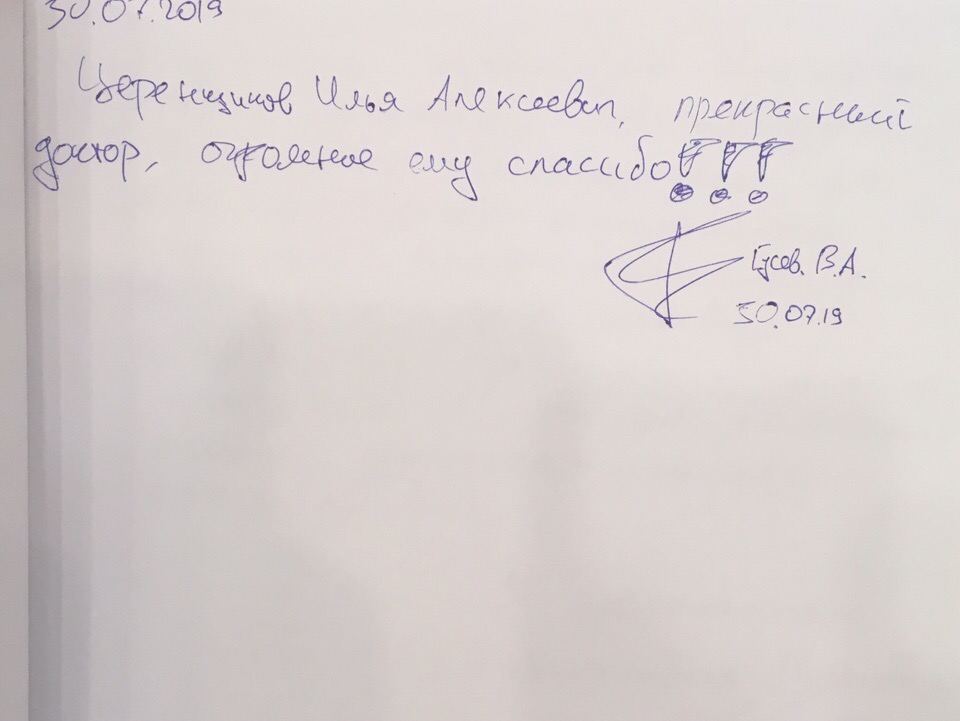 30.07.2019
Церенщиков Илья Алексеевич, прекрасний
доктор, огромное ему спасибо!!!
Гусев. В.А.
30.07.19